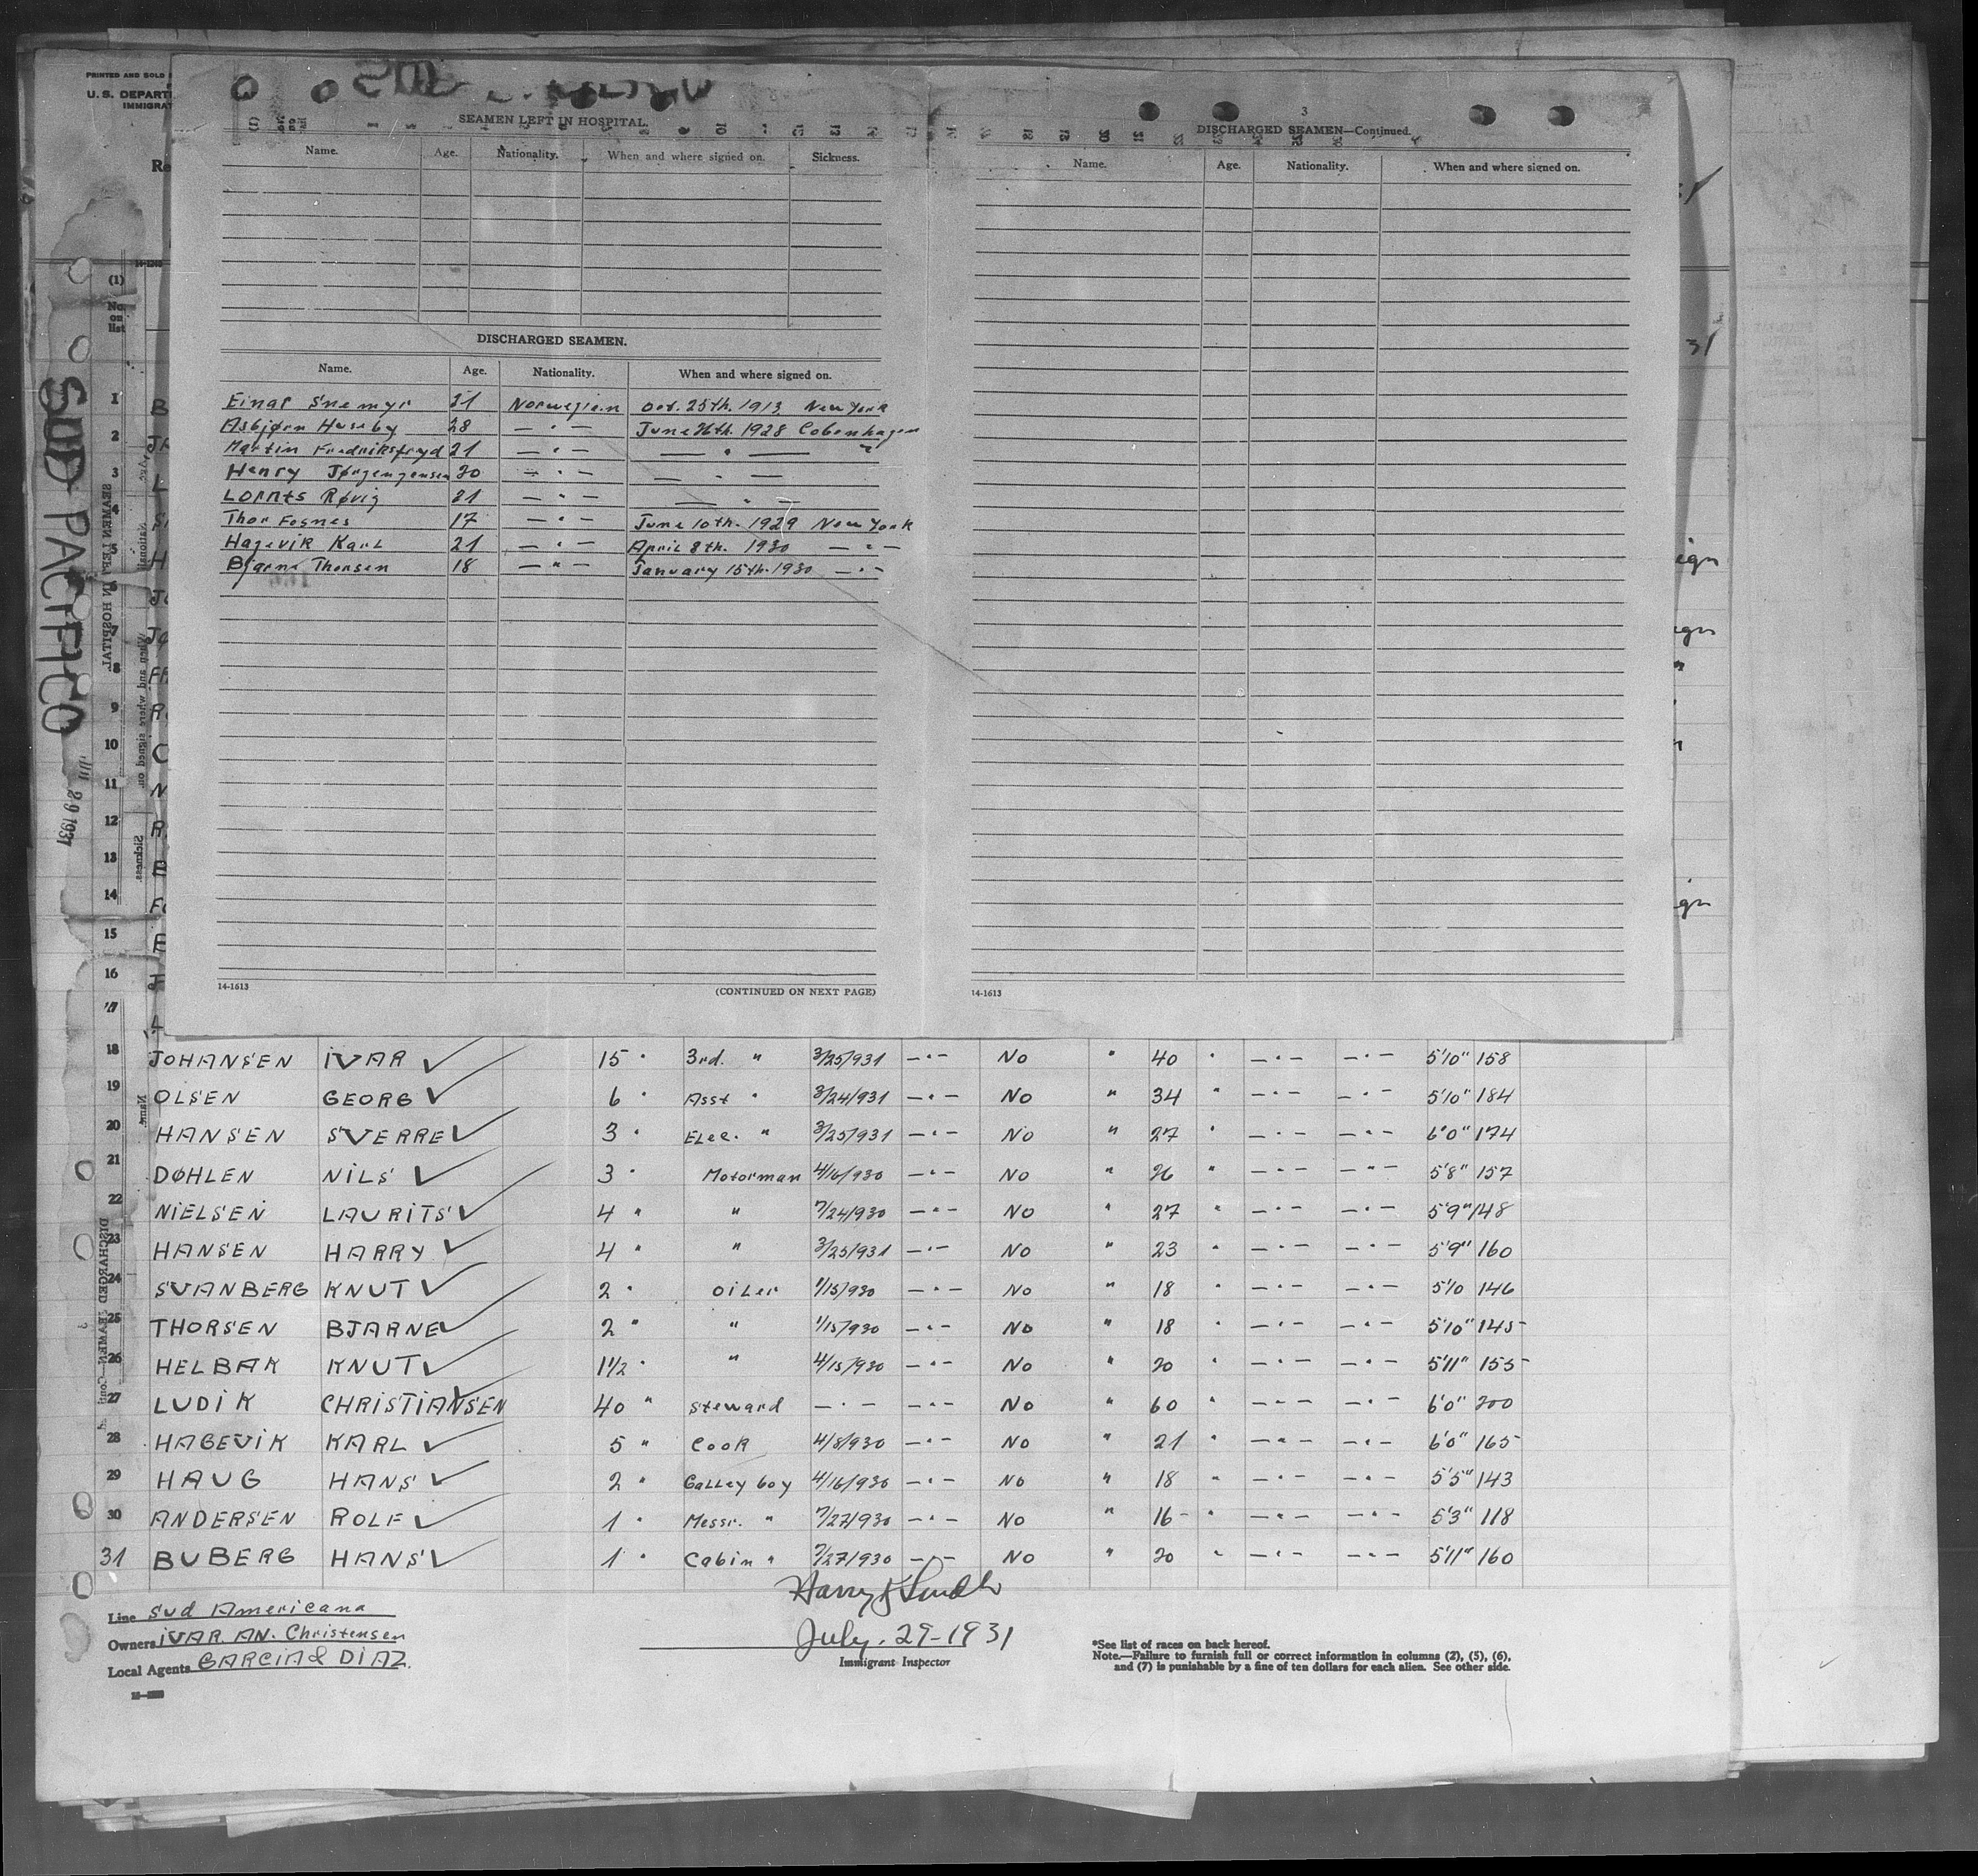 PRINTED AND SOLD
U. S. DEPART
IMMIGRAT
Re
SUD PACIFICO
29 1931
(1)
No. on list
SEAMEN LEFT IN HOSPITAL.
Name. Age. Nationality. When and where signed on. Sickness.
DISCHARGED SEAMEN.
Name. Age. Nationality. When and where signed on.
Einar Snemyr 31 Norwegian Oct. 25th. 1913 New York
Asbjørn Huseby 28 — " — June 26th. 1928 Cobenhagen
Martin Fredriksfryd 21 — " — — " — "
Henry Jørgengensen 20 — " — — " —
Lornts Røvig 21 — " — — " —
Thor Fosnes 17 — " — June 10th. 1929 New York
Hagevik Karl 21 — " — April 8th. 1930 — " —
Bjarne Thorsen 18 — " — January 15th. 1930 — " —
14-1613 (CONTINUED ON NEXT PAGE)
3
DISCHARGED SEAMEN—Continued.
Name. Age. Nationality. When and where signed on.
14-1613
1
2
3
4
5
6
7
8
9
10
11
12
13
14
15
16
17
18 JOHANSEN IVAR ✓ 15 " 3rd. " 3/25/931 — " — No " 40 " — " — — " — 5'10" 158
19 OLSEN GEORG ✓ 6 " Asst " 3/24/931 — " — No " 34 " — " — — " — 5'10" 184
20 HANSEN SVERRE ✓ 3 " Elec. " 3/25/931 — " — No " 27 " — " — — " — 6'0" 174
21 DØHLEN NILS ✓ 3 " Motorman 4/16/930 — " — No " 26 " — " — — " — 5'8" 157
22 NIELSEN LAURITS ✓ 4 " " 7/24/930 — " — No " 27 " — " — — " — 5'9" 148
23 HANSEN HARRY ✓ 4 " " 3/25/931 — " — No " 23 " — " — — " — 5'9" 160
24 SVANBERG KNUT ✓ 2 " Oiler 1/15/930 — " — No " 18 " — " — — " — 5'10 146
25 THORSEN BJARNE ✓ 2 " " 1/15/930 — " — No " 18 " — " — — " — 5'10" 145
26 HELBAK KNUT ✓ 1½ " " 4/15/930 — " — No " 20 " — " — — " — 5'11" 155
27 LUDIK CHRISTIANSEN ✓ 40 " Steward — " — — " — No " 60 " — " — — " — 6'0" 200
28 HAGEVIK KARL ✓ 5 " Cook 4/8/930 — " — No " 21 " — " — — " — 6'0" 165
29 HAUG HANS ✓ 2 " Galley boy 4/16/930 — " — No " 18 " — " — — " — 5'5" 143
30 ANDERSEN ROLF ✓ 1 " Messr. " 7/27/930 — " — No " 16 " — " — — " — 5'3" 118
31 BUBERG HANS ✓ 1 " Cabin " 7/27/930 — " — No " 20 " — " — — " — 5'11" 160
Line Sud Americana
Owners IVAR AN. Christensen
Local Agents GARCIA & DIAZ.
Harry
July. 29-1931
Immigrant Inspector
*See list of races on back hereof.
Note.—Failure to furnish full or correct information in columns (2), (5), (6),
and (7) is punishable by a fine of ten dollars for each alien. See other side.